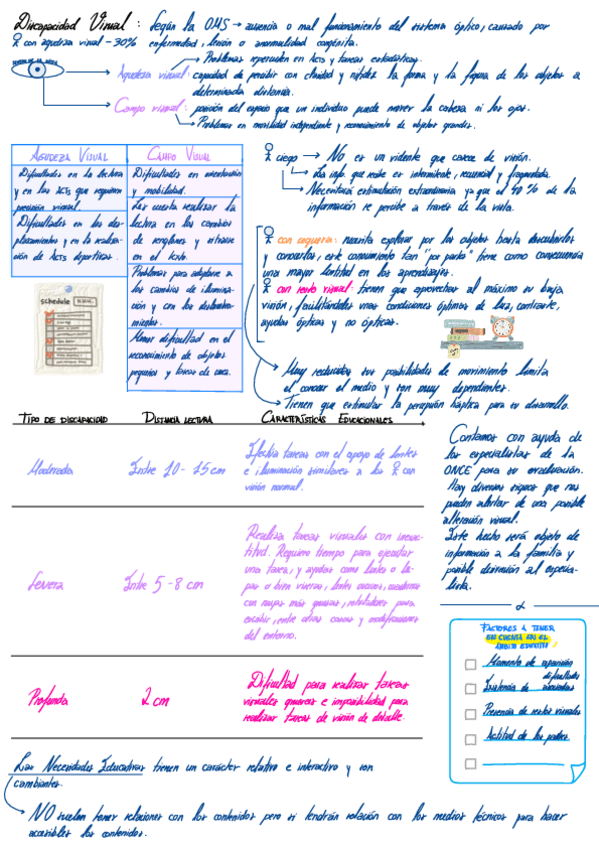 Discapacidad Visual: Según la OMS → ausencia o mal funcionamiento del sistema óptico, causado por
con agudeza visual -30% enfermedad, lesión o anormalidad congénita.
Problemas repercuten en Acts y tareas estadísticas.
Agudeza visual: capacidad de percibir con claridad y nitidez la forma y la figura de los objetos a
determinada distancia.
Campo visual: porción del espacio que un individuo puede ver sin mover la cabeza ni los ojos.
Problemas en movilidad independiente y reconocimiento de objetos grandes.
AGUDEZA VISUAL
Dificultades en la lectura
y en las ACTS que requieren
precisión visual.
Dificultades en los des-
plazamientos y en la realiza-
ción de Acts deportivas.
CAMPO VISUAL
Dificultades en orientación
y movilidad.
Les cuesta realizar la
lectura en los cambios
de renglones y
en el texto.
Problemas para adaptarse a
los cambios de ilumina-
ción y con los deslumbra-
mientos.
Mayor dificultad en el
reconocimiento de objetos
pequeños y tareas de cerca.
schedule
ciego → No es un vidente que carece de visión.
La info. que recibe es intermitente, secuencial y fragmentada.
Necesitará estimulación extraordinaria ya que el % de la
información se percibe a través de la vista.
con ceguera: necesita explorar por los objetos hasta descubrirlos
y conocerlos, este conocimiento tan "por partes" tiene como consecuencia
una mayor lentitud en los aprendizajes.
con resto visual: tienen que aprovechar al máximo su baja
visión, facilitándoles unas condiciones óptimas de luz, contraste,
ayudas ópticas y no ópticas.
Muy reducidas sus posibilidades de movimiento limita
el conocer el medio y son muy dependientes.
Tienen que estimular la percepción háptica para su desarrollo.
TIPO DE DISCAPACIDAD DISTANCIA LECTURA CARACTERÍSTICAS EDUCACIONALES
Moderada Entre 10-15 cm
Efectúa tareas con el apoyo de lentes
e iluminación similares a los con
visión normal.
Severa Entre 5-8 cm
Realiza tareas visuales con inexac-
titud. Requiere tiempo para ejecutar
una tarea, y ayudas como lentes o lu-
pas o bien viseras, lentes oscuros, cuadernos
con rayas más gruesas, rotuladores para
escribir, entre otras cosas y modificaciones
del entorno.
Profunda 2 cm
Dificultad para realizar tareas
visuales gruesas e imposibilidad para
realizar tareas de visión de detalle.
Contamos con ayuda de
los especialistas de la
ONCE para su evaluación.
Hay diversos signos que nos
pueden alertar de una posible
alteración visual.
Este hecho será objeto de
información a la familia y
posible derivación al especia-
lista.
FACTORES A TENER
EN CUENTA EN EL
ÁMBITO EDUCATIVO
Momento de aparición
Existencia de dificultades asociadas
Presencia de restos visuales
Actitud de los padres
Las Necesidades Educativas tienen un carácter relativo e interactivo y son
cambiantes.
NO suelen tener relaciones con los contenidos pero sí tendrán relación con los medios técnicos para hacer
accesibles los contenidos.